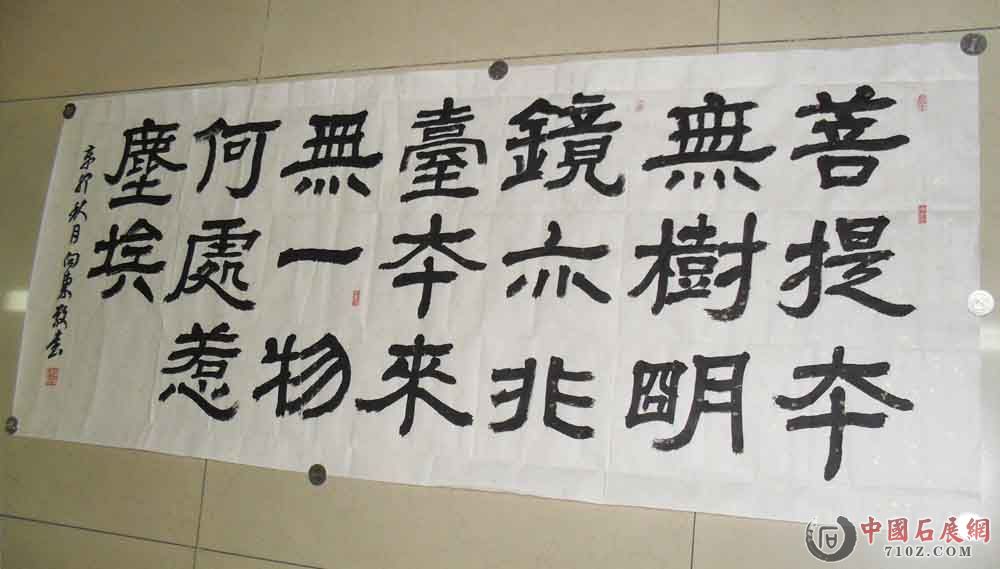 菩提夲
無樹明
鏡亦非
臺夲來
無一物
何處惹
塵埃
辛卯秋月向東敬書
中國石展網
710Z.COM